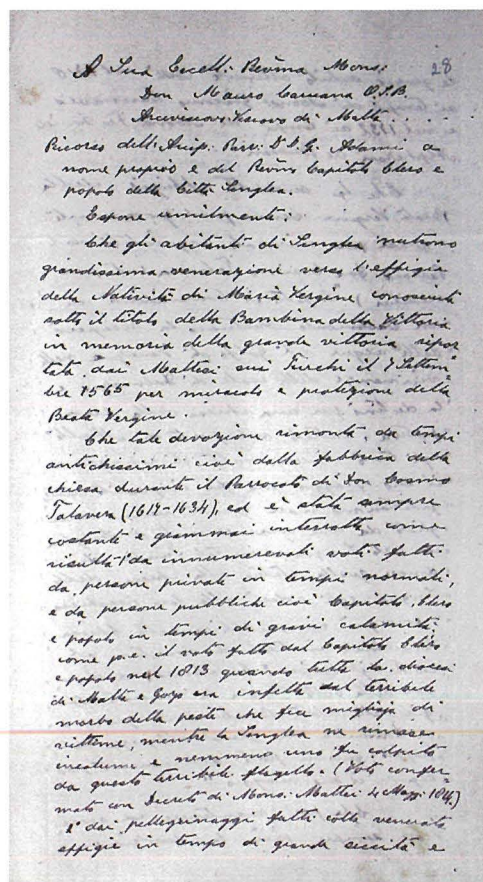 28
A Sua Eccell: Revma Mons:
Don Mauro Caruana O.S.B.
Arcivescovo Vescovo di Malta . . . .
Ricorso dell: Arcip: Parr: D. G. Adami a
nome proprio e del Revmo Capitolo Clero e
popolo della Città Senglea.
Espone umilmente:
Che gli abitanti di Senglea nutrono
grandissima venerazione verso l'effigie
della Natività di Maria Vergine conosciuta
sotto il titolo della Bambina della Vittoria
in memoria della grande vittoria ripor
tata dai Maltesi sui Turchi il 7 Settem
bre 1565 per miracolo e protezione della
Beata Vergine.
Che tale devozione rimonta da tempi
antichissimi cioè dalla fabbrica della
chiesa durante il Parrocato di Don Cosmo
Talavera (1614-1634), ed è stata sempre
costante e giammai interrotta come
risulta: da innumerevoli voti fatti
da persone private in tempi normali,
e da persone pubbliche cioè Capitolo, Clero
e popolo in tempi di gravi calamità
come p.e. il voto fatto dal Capitolo Clero
e popolo nel 1813 quando tutta la diocesi
di Malta e Gozo era infetta dal terribile
morbo della peste che fece migliaja di
vittime, mentre la Senglea ne rimase
incolume e nemmeno uno fu colpito
da questo terribile flagello. (Voto confer
mato con Decreto di Mons: Mattei 4 Magg: 1814)
e dai pellegrinaggi fatti colla venerata
effigie in tempo di grande siccità e